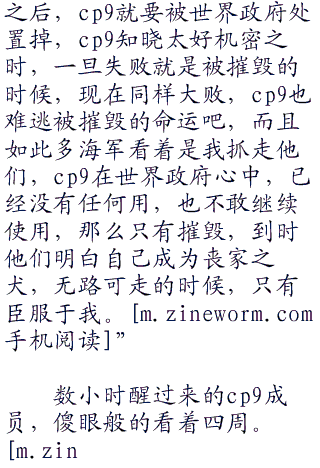 之后，cp9就要被世界政府处
置掉，cp9知晓太好机密之
时，一旦失败就是被摧毁的
时候，现在同样大败，cp9也
难逃被摧毁的命运吧，而且
如此多海军看着是我抓走他
们，cp9在世界政府心中，已
经没有任何用，也不敢继续
使用，那么只有摧毁，到时
他们明白自己成为丧家之
犬，无路可走的时候，只有
臣服于我。[m.zineworm.com
手机阅读]”
数小时醒过来的cp9成
员，傻眼般的看着四周。
[m.zin